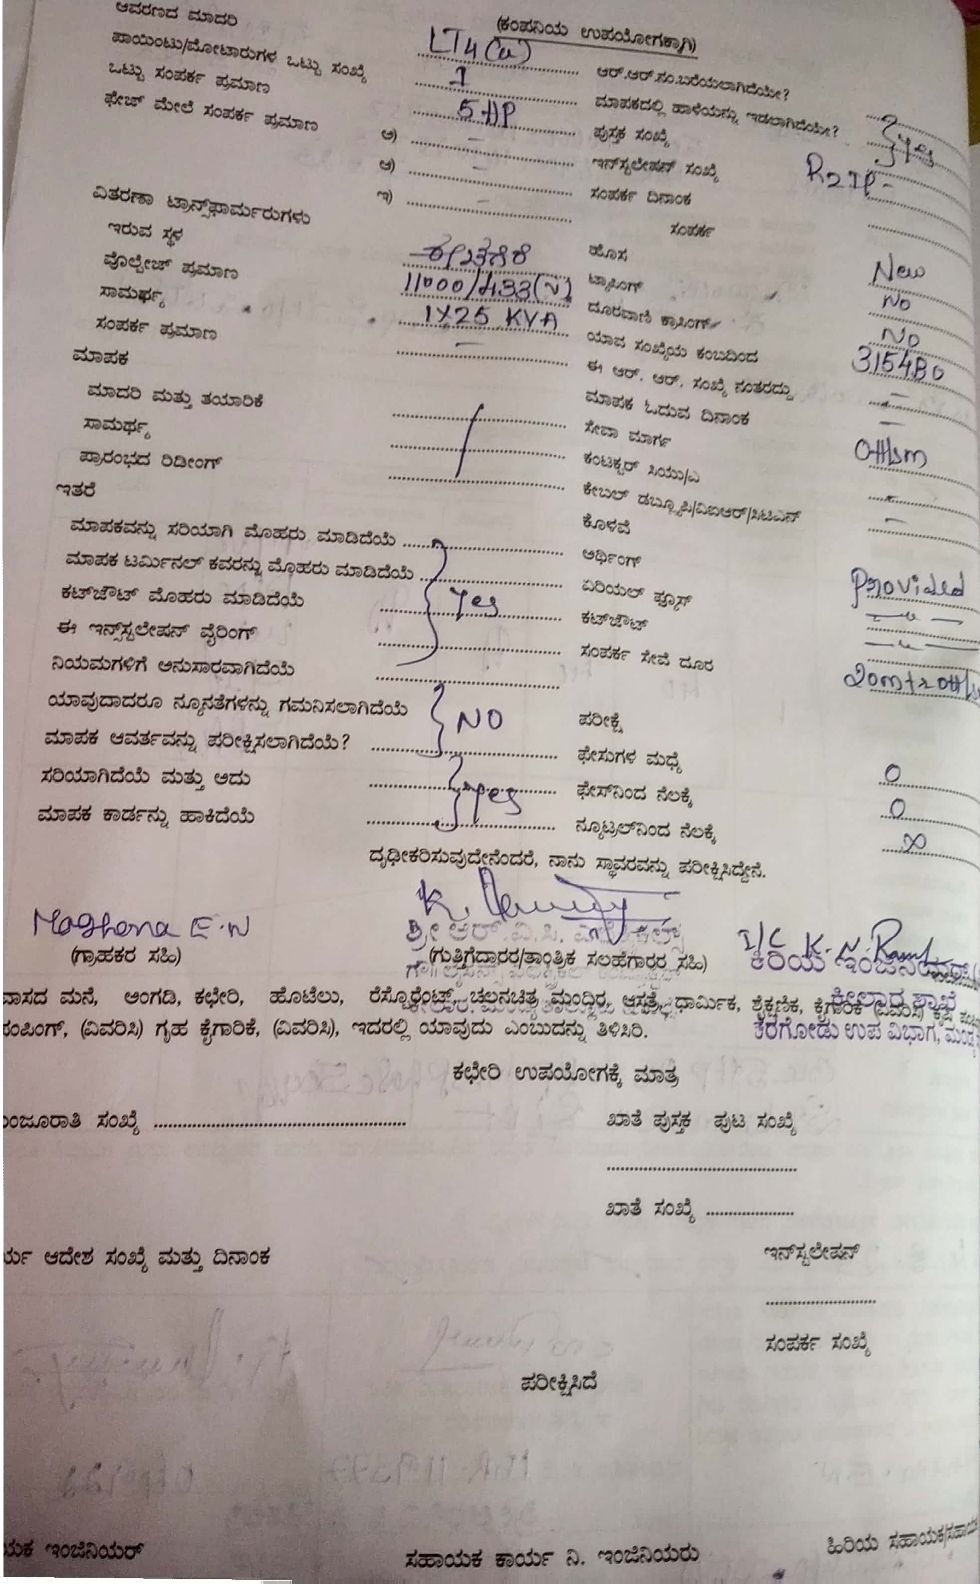 (ಕಂಪನಿಯ ಉಪಯೋಗಕ್ಕಾಗಿ)
ಆವರಣದ ಮಾದರಿ LT4(a) ಆರ್.ಆರ್.ನಂ.ಬರೆಯಲಾಗಿದೆಯೇ?
ಪಾಯಿಂಟು/ಮೋಟಾರುಗಳ ಒಟ್ಟು ಸಂಖ್ಯೆ 1 ಮಾಪಕದಲ್ಲಿ ಹಾಳೆಯನ್ನು ಇಡಲಾಗಿದೆಯೇ? yes
ಒಟ್ಟು ಸಂಪರ್ಕ ಪ್ರಮಾಣ 5 HP ಪುಸ್ತಕ ಸಂಖ್ಯೆ
ಫೇಜ್ ಮೇಲೆ ಸಂಪರ್ಕ ಪ್ರಮಾಣ ಅ) - ಇನ್‌ಸ್ಟಲೇಷನ್ ಸಂಖ್ಯೆ
ಆ) - ಸಂಪರ್ಕ ದಿನಾಂಕ
ಇ) - ಸಂಪರ್ಕ
ವಿತರಣಾ ಟ್ರಾನ್ಸ್‌ಫಾರ್ಮರುಗಳು
ಇರುವ ಸ್ಥಳ ಹೊಸ New
ವೋಲ್ಟೇಜ್ ಪ್ರಮಾಣ 11000/433(V) ಟ್ಯಾಪಿಂಗ್ No
ಸಾಮರ್ಥ್ಯ 1X25 KVA ದೂರವಾಣಿ ಕ್ರಾಸಿಂಗ್ No
ಸಂಪರ್ಕ ಪ್ರಮಾಣ - ಯಾವ ಸಂಖ್ಯೆಯ ಕಂಬದಿಂದ 315480
ಮಾಪಕ ಈ ಆರ್. ಆರ್. ಸಂಖ್ಯೆ ನಂತರದ್ದು -
ಮಾದರಿ ಮತ್ತು ತಯಾರಿಕೆ ಮಾಪಕ ಓದುವ ದಿನಾಂಕ -
ಸಾಮರ್ಥ್ಯ ಸೇವಾ ಮಾರ್ಗ
ಪ್ರಾರಂಭದ ರಿಡೀಂಗ್ ಕಂಟಕ್ಟರ್ ಸಿಯು/ಎ -
ಇತರೆ ಕೇಬಲ್ ಡಬ್ಲ್ಯೂಪಿ/ವಿಐಆರ್/ಸಿಟಿಎನ್ -
ಕೊಳವೆ
ಮಾಪಕವನ್ನು ಸರಿಯಾಗಿ ಮೊಹರು ಮಾಡಿದೆಯೆ ಅರ್ಥಿಂಗ್ Provided
ಮಾಪಕ ಟರ್ಮಿನಲ್ ಕವರನ್ನು ಮೊಹರು ಮಾಡಿದೆಯೆ ಏರಿಯಲ್ ಫ್ಯೂಸ್
ಕಟ್‌ಔಟ್ ಮೊಹರು ಮಾಡಿದೆಯೆ Yes ಕಟ್‌ಔಟ್
ಈ ಇನ್‌ಸ್ಟಲೇಷನ್ ವೈರಿಂಗ್ ಸಂಪರ್ಕ ಸೇವೆ ದೂರ
ನಿಯಮಗಳಿಗೆ ಅನುಸಾರವಾಗಿದೆಯೆ
ಯಾವುದಾದರೂ ನ್ಯೂನತೆಗಳನ್ನು ಗಮನಿಸಲಾಗಿದೆಯೆ NO ಪರೀಕ್ಷೆ
ಮಾಪಕ ಆವರ್ತವನ್ನು ಪರೀಕ್ಷಿಸಲಾಗಿದೆಯೆ? ಫೇಸುಗಳ ಮಧ್ಯೆ 0
ಸರಿಯಾಗಿದೆಯೆ ಮತ್ತು ಅದು Yes ಫೇಸ್‌ನಿಂದ ನೆಲಕ್ಕೆ 0
ಮಾಪಕ ಕಾರ್ಡನ್ನು ಹಾಕಿದೆಯೆ ನ್ಯೂಟ್ರಲ್‌ನಿಂದ ನೆಲಕ್ಕೆ ∞
ದೃಢೀಕರಿಸುವುದೇನೆಂದರೆ, ನಾನು ಸ್ಥಾವರವನ್ನು ಪರೀಕ್ಷಿಸಿದ್ದೇನೆ.
(ಗ್ರಾಹಕರ ಸಹಿ) (ಗುತ್ತಿಗೆದಾರರ/ತಾಂತ್ರಿಕ ಸಲಹೆಗಾರರ ಸಹಿ) ಕಿರಿಯ ಇಂಜಿನಿಯರ್
ವಾಸದ ಮನೆ, ಅಂಗಡಿ, ಕಛೇರಿ, ಹೊಟೆಲು, ರೆಸ್ಟೊರೆಂಟ್, ಚಲನಚಿತ್ರ ಮಂದಿರ, ಆಸ್ಪತ್ರೆ, ಧಾರ್ಮಿಕ, ಶೈಕ್ಷಣಿಕ, ಕೈಗಾರಿಕೆ (ವಿವರಿಸಿ) ಕೃಷಿ
ಪಂಪಿಂಗ್, (ವಿವರಿಸಿ) ಗೃಹ ಕೈಗಾರಿಕೆ, (ವಿವರಿಸಿ), ಇದರಲ್ಲಿ ಯಾವುದು ಎಂಬುದನ್ನು ತಿಳಿಸಿರಿ. ಕೆರಗೋಡು ಉಪ ವಿಭಾಗ,
ಕಛೇರಿ ಉಪಯೋಗಕ್ಕೆ ಮಾತ್ರ
ಮಂಜೂರಾತಿ ಸಂಖ್ಯೆ ಖಾತೆ ಪುಸ್ತಕ ಪುಟ ಸಂಖ್ಯೆ
ಖಾತೆ ಸಂಖ್ಯೆ
ರ್ಯ ಆದೇಶ ಸಂಖ್ಯೆ ಮತ್ತು ದಿನಾಂಕ ಇನ್‌ಸ್ಟಲೇಷನ್
ಸಂಪರ್ಕ ಸಂಖ್ಯೆ
ಪರೀಕ್ಷಿಸಿದೆ
ಯಕ ಇಂಜಿನಿಯರ್ ಸಹಾಯಕ ಕಾರ್ಯ ನಿ. ಇಂಜಿನಿಯರು ಹಿರಿಯ ಸಹಾಯಕ/ಸಹಾಯ